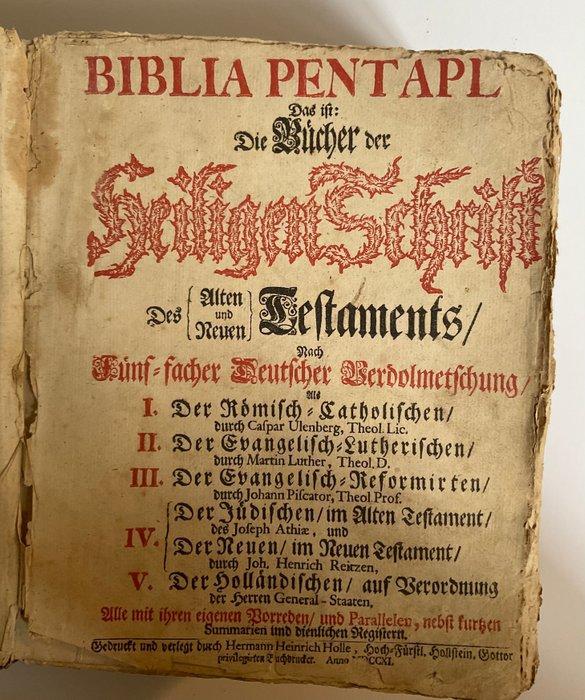 BIBLIA PENTAPL
Das ist:
Die Bücher der
Heiligen Schrift
Des { Alten und Neuen } Testaments/
Nach
Fünf-facher Deutscher Verdolmetschung/
Als
I. Der Römisch-Catholischen/
durch Caspar Ulenberg, Theol. Lic.
II. Der Evangelisch-Lutherischen/
durch Martin Luther, Theol. D.
III. Der Evangelisch-Reformirten/
durch Johann Piscator, Theol. Prof.
IV. Der Jüdischen/ im Alten Testament/
des Joseph Athiæ, und
Der Neuen/ im Neuen Testament/
durch Joh. Henrich Reitzen,
V. Der Holländischen/ auf Verordnung
der Herren General-Staaten,
Alle mit ihren eigenen Vorreden/ und Parallelen, nebst kurtzen
Summarien und dienlichen Registern.
Gedruckt und verlegt durch Hermann Heinrich Holle, Hoch-Fürstl. Hollstein. Gottor
privilegirten Buchdrucker. Anno